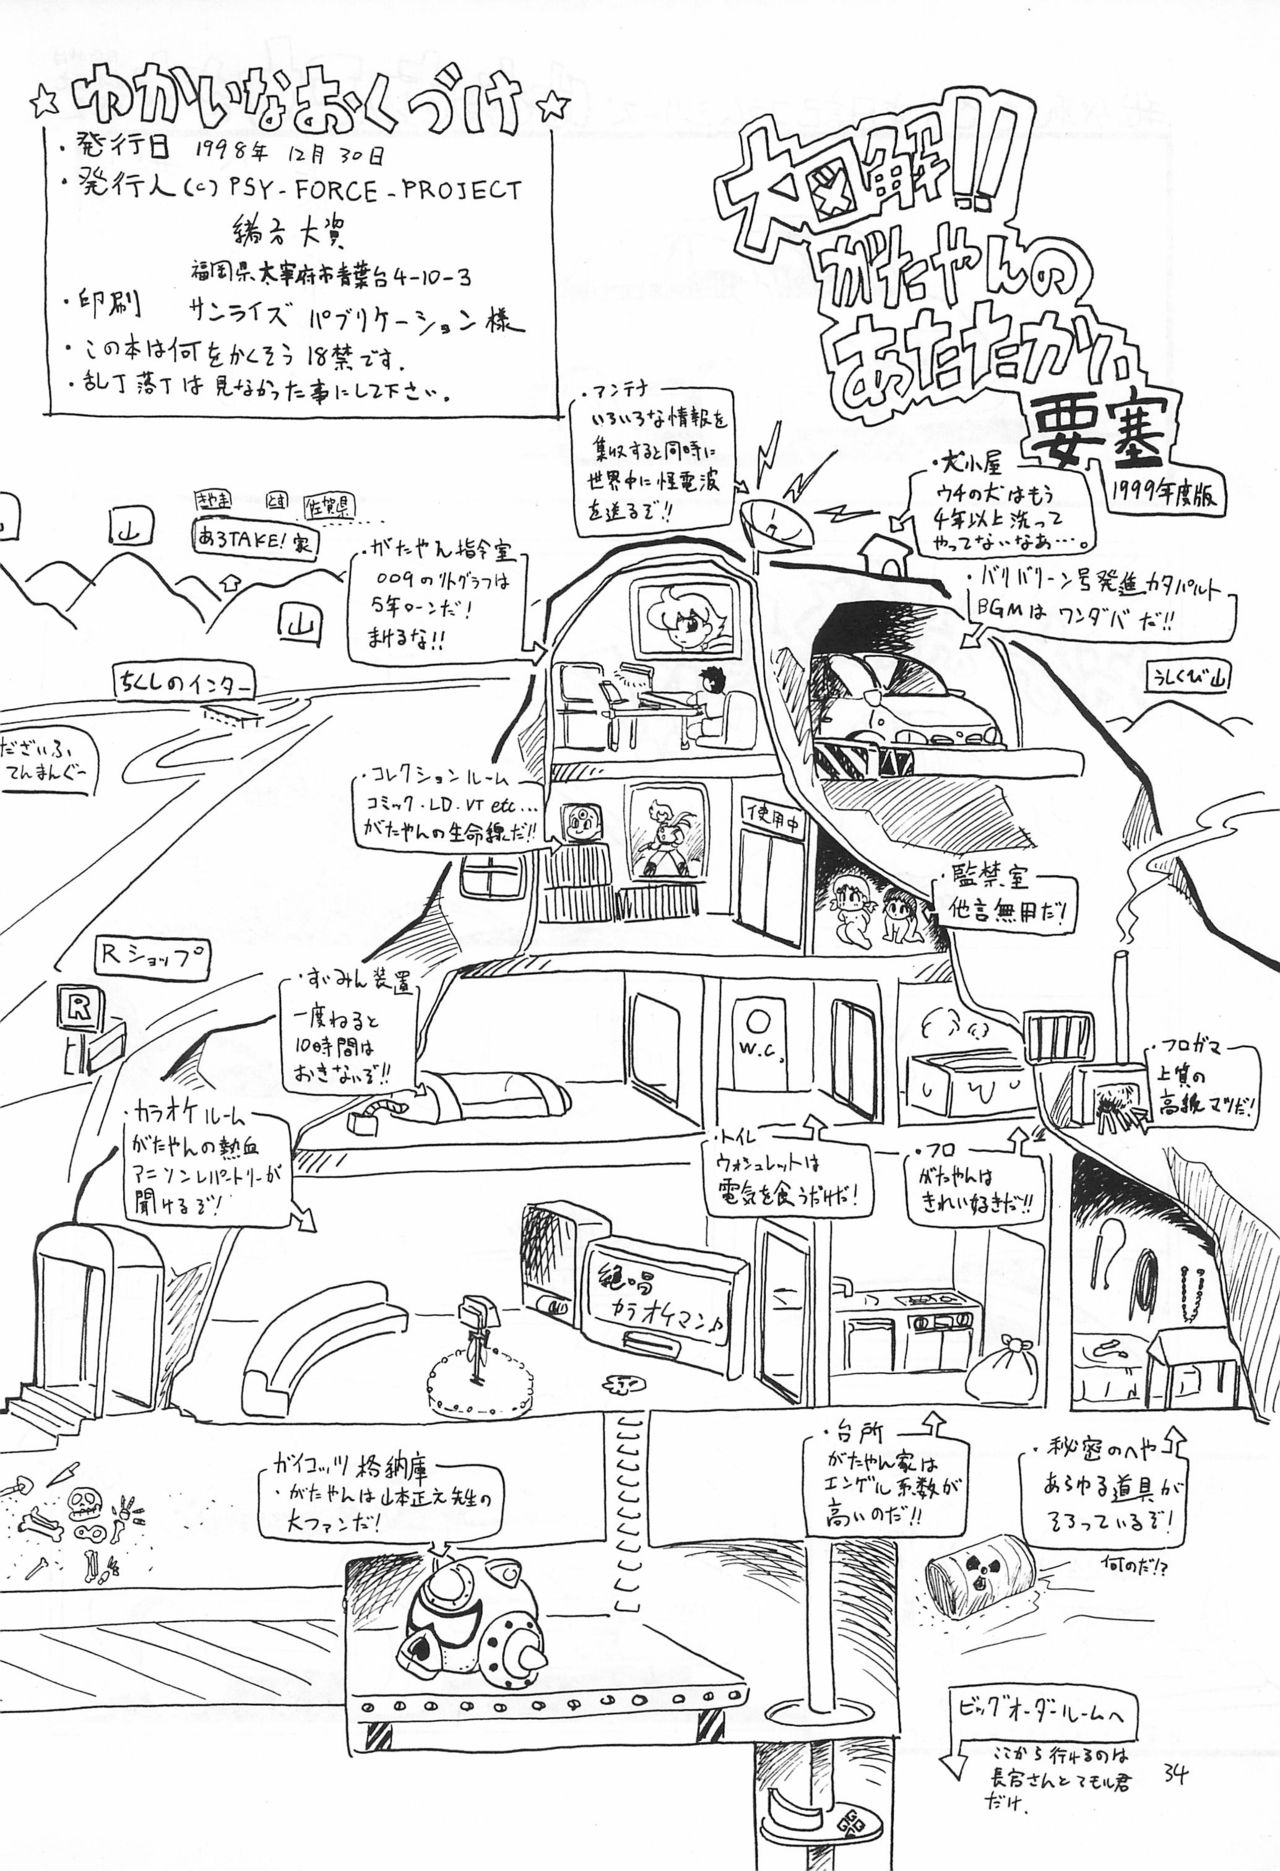 ☆ゆかいなおくづけ☆
・発行日 1998年 12月 30日
・発行人(c) PSY-FORCE-PROJECT
緒方大賀
福岡県太宰府市青葉台4-10-3
・印刷 サンライズ パブリケーション様
・この本は何をかくそう18禁です.
・乱丁落丁は見なかった事にして下さい.
大図解!!
がたやんの
あたたかい
要塞
1999年度版
・アンテナ
いろいろな情報を
集収すると同時に
世界中に怪電波
を送るぞ!!
・犬小屋
ウチの犬はもう
4年以上洗って
やってないなあ…。
・バリバリーン号発進カタパルト
BGMは ワンダバだ!!
うしくび山
山
山
きやま
とす
佐賀県
あるTAKE!家
山
・がたやん指令室
009のリトグラフは
5年ローンだ!
まけるな!!
ちくしのインター
だざいふ
てんまんぐー
・コレクションルーム
コミック・LD・VT etc…
がたやんの生命線だ!!
使用中
・監禁室
他言無用だ!
Rショップ
R
・すいみん装置
一度ねると
10時間は
おきないぞ!!
W.C.
・フロガマ
上質の
高級マツだ!
・カラオケルーム
がたやんの熱血
アニソンレパートリーが
聞けるぞ!
・トイレ
ウォシュレットは
電気を食うだけだ!
・フロ
がたやんは
きれい好きだ!!
絶唱
カラオケマン♪
ガイコッツ格納庫
・がたやんは山本正之先生の
大ファンだ!
・台所
がたやん家は
エンゲル系数が
高いのだ!!
・秘密のへや
あらゆる道具が
そろっているぞ!
何のだ!?
ビッグオーダールームへ
ここから行けるのは
長官さんとてモル君
だけ.
34